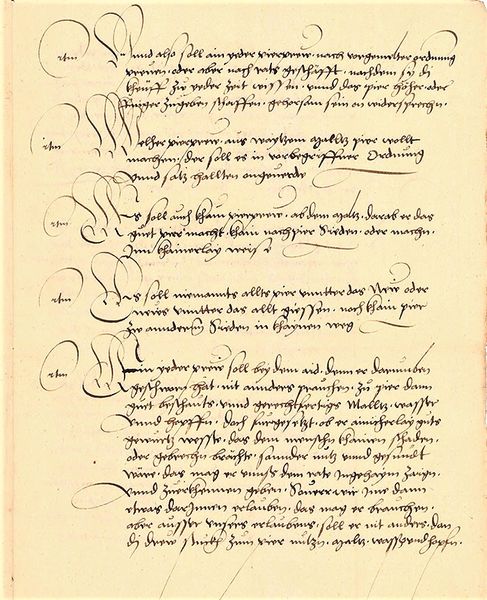 Item
Unnd also soll ain yeder pierprew, nach vorgemelter ordnung
prewen, oder aber nach rats geschäfft, nachdem sy di
kheuff zu yeder zeit wissen, unnd das pier höher, oder
ringer zugeben schaffen, gehorsam sein on widersprechn.
Item
Welher pierprew, aus waytzem malltz pier wollt
machen, der soll es in vorbegriffner Ordnung
unnd satz hallten ongeverde
Item
Es soll auch khain pierprew, ab dem maltz, darab er das
guet pier macht, khain nachpier Sieden, oder machn,
Inn khainerlay weise
Item
Es soll niemannts allts pier unntter das New oder
news unntter das allt giessen, noch khain pier
zw annderm Sieden in khaynen weg
Item
Ain yeder prew soll bey dem aid, denn er darumben
geschworn hat, nit annders prauchen, zu pier dann
guet beschauts, unnd gerechtfertigts Malltz, wasser
unnd hopffn, doch furgesetzt, ob er ainicherlay guts
gewurtz wesste, das dem menschn khainen schaden,
oder gebrechn brächte, sonnder nutz unnd gesundt
wäre, das mag er unnss dem rate Ingehaym zaign,
unnd zuerkhennen geben, Soverr wir Ime dann
etwas darInnen erlauben, das mag er brauchen,
aber ausser unnsers erlaubens, soll er nit anders, dan
di drew stuckh zum pier nutzn, maltz, wasser und hopfn.